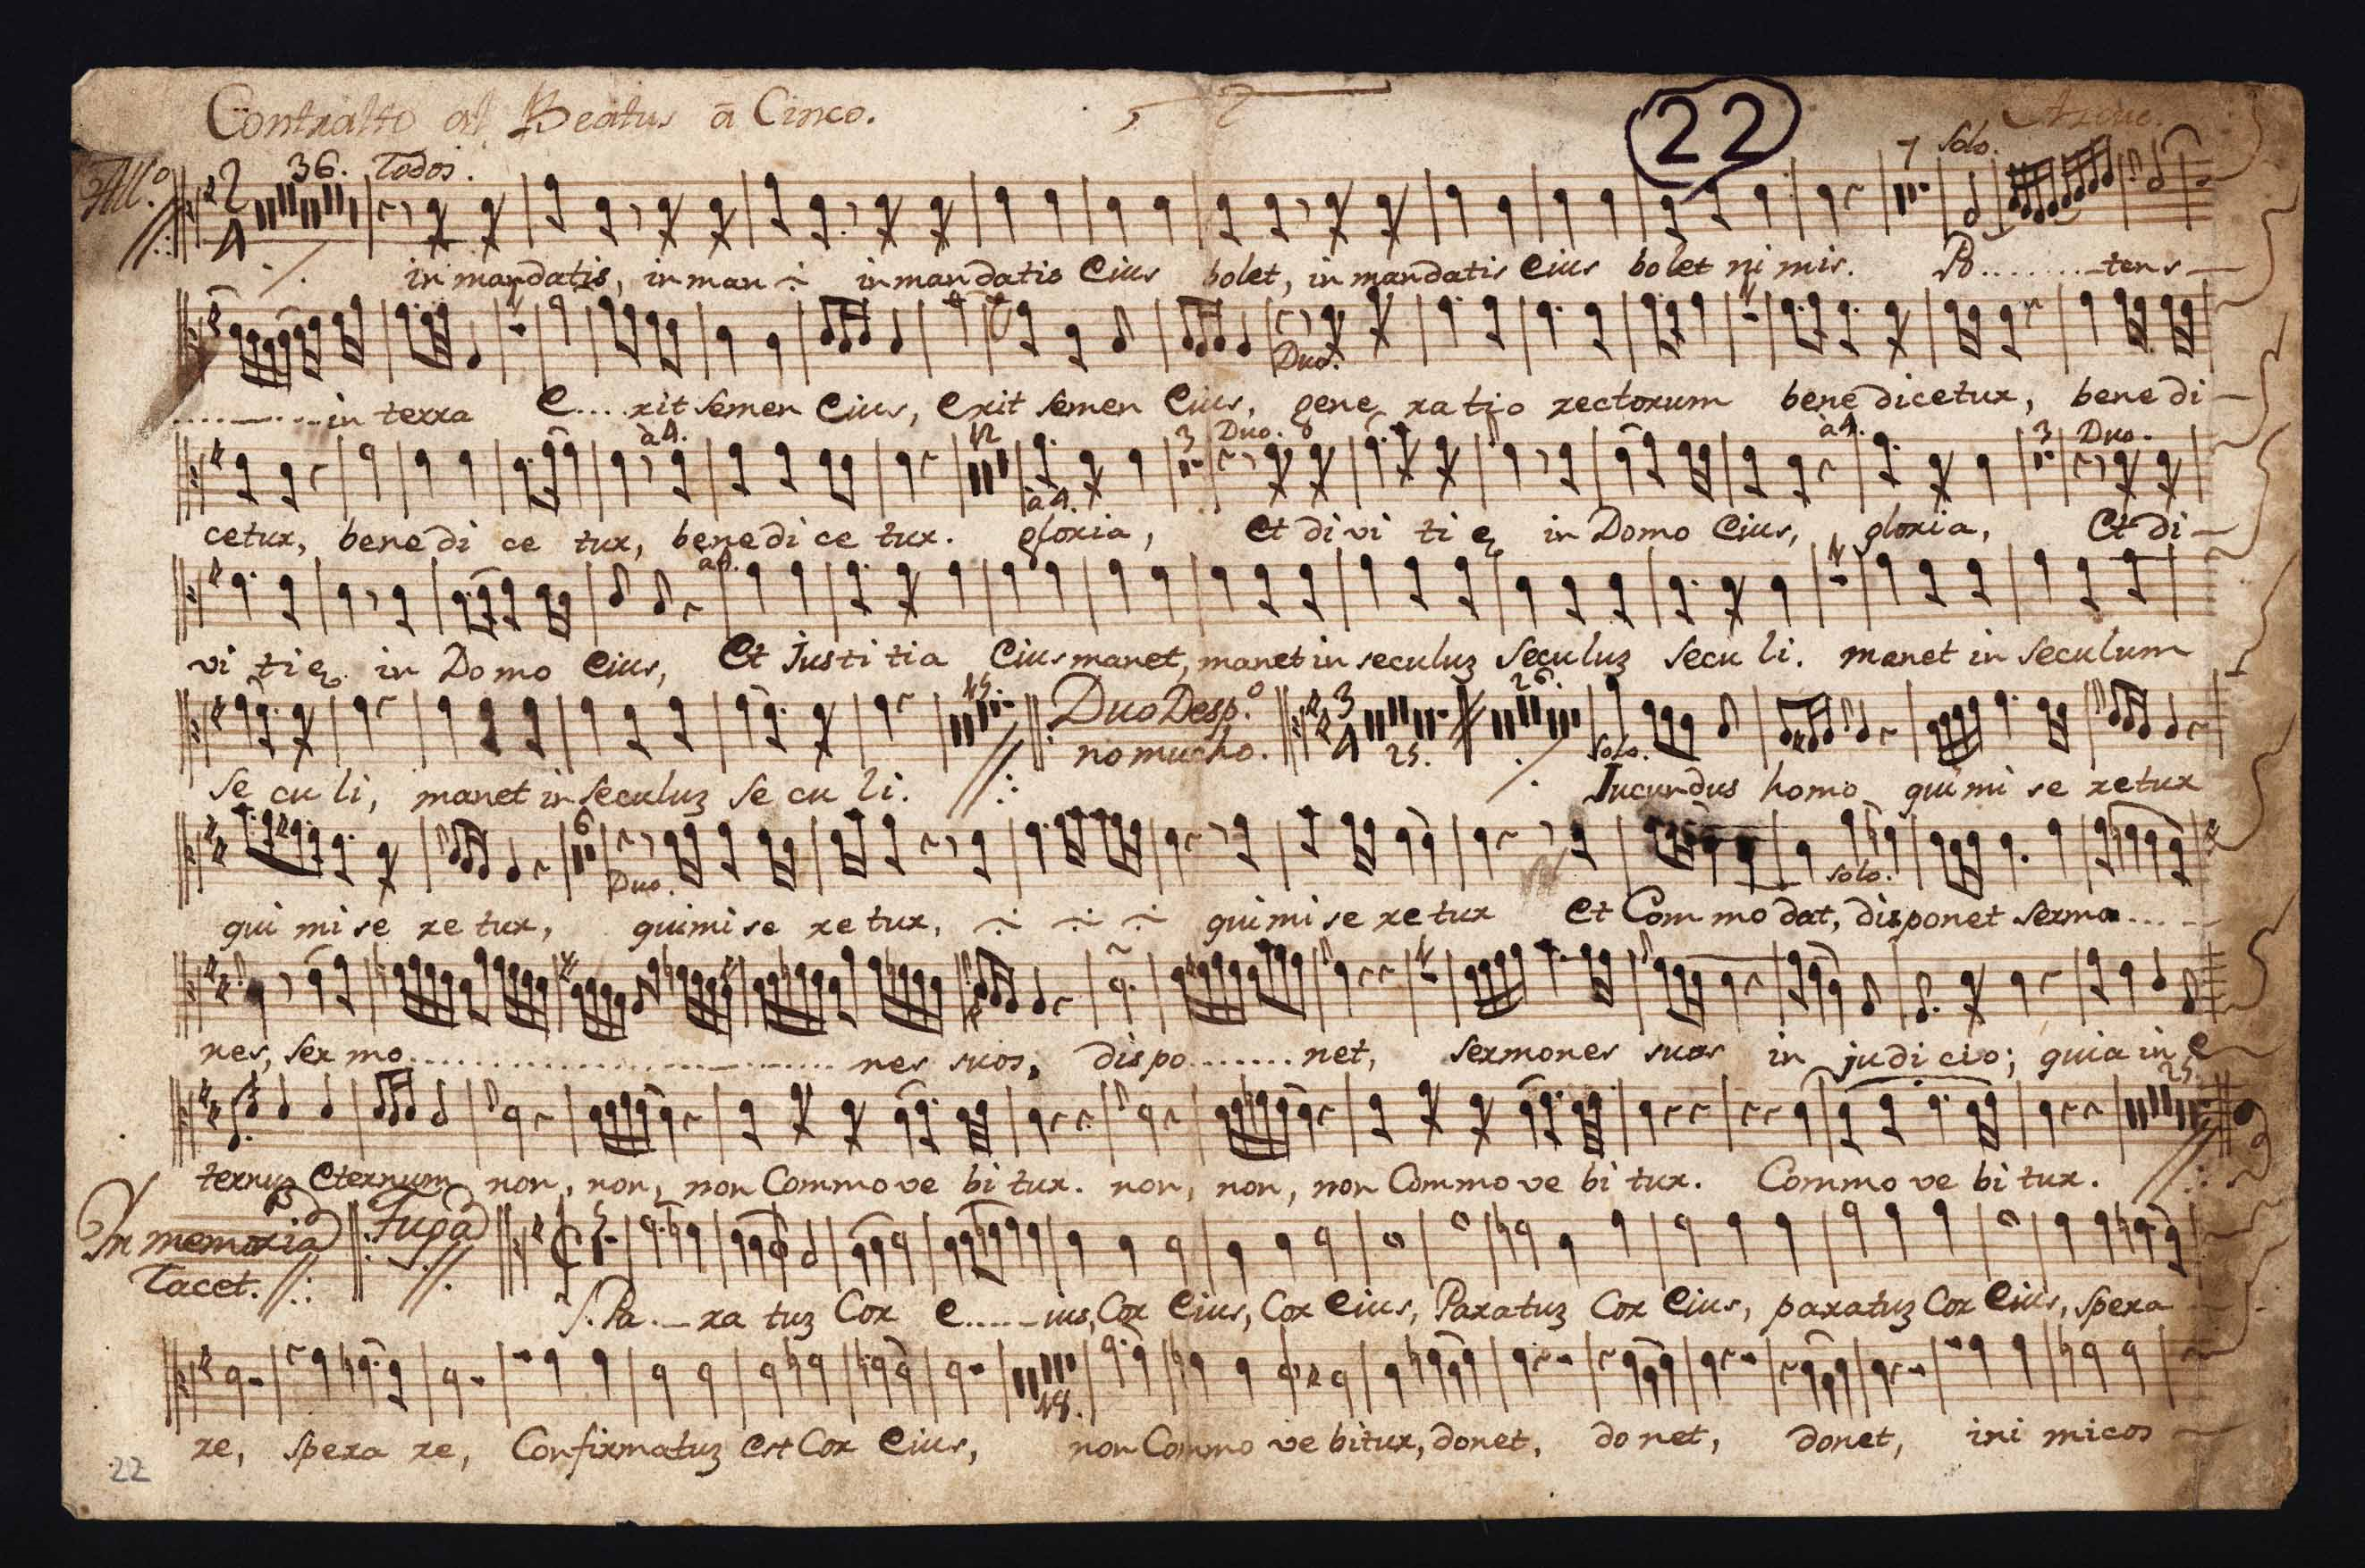 Contralto al Beatus â Cinco.
22
All.º 36. Todos. 7 Solo.
in mandatis, in man ÷ in mandatis Eius bolet, in mandatis Eius bolet ni mis. Po........tens
Duo.
..........in terra E....rit semen Eius, Erit semen Eius, gene ratio rectorum bene dicetur, bene di
à4. 12 3 Duo. à4. 3 Duo.
à4.
cetur, bene di ce tur, bene di ce tur. gloria, Et di vi ti ę in Domo Eius, gloria, Et di
à4.
vi ti ę in Domo Eius, Et Justi tia Eius manet, manet in seculuz Seculuz Secu li. manet in Seculum
15. Duo Desp.º 3 4 26.
no mucho. 25. Solo.
Se cu li, manet in Seculuz Se cu li. Jucundus homo qui mi se retur
6 Duo. Solo.
qui mi se re tur, qui mi se re tur, ÷ ÷ ÷ qui mi se re tur Et Com mo dat, disponet sermo.....
nes, ser mo.............................. nes suos, dispo........net, sermones suos in judi cio; quia in e
25.
ternuz Eternum non, non, non Commo ve bi tur. non, non, non Commo ve bi tur. Commo ve bi tur.
In memoria Fuga
Tacet.
Pa...ra tuz Cor e......ius, Cor Eius, Cor Eius, Paratuz Cor Eius, paratuz Cor Eius, spera
18.
re, spera re, Confirmatuz est Cor Eius, non Commo ve bitur, donet, do net, donet, ini micos
22